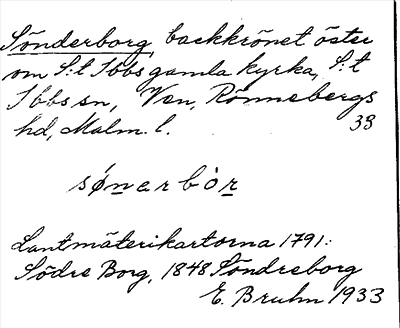 Sönderborg, backkrönet öster
om S:t Ibbs gamla kyrka, S:t
Ibbs sn, Ven, Rönnebergs
hd, Malm. l. 33
sǿnarbòr
Lantmäterikartorna 1791:
Södre Borg, 1848 Söndreborg
E. Bruhn 1933